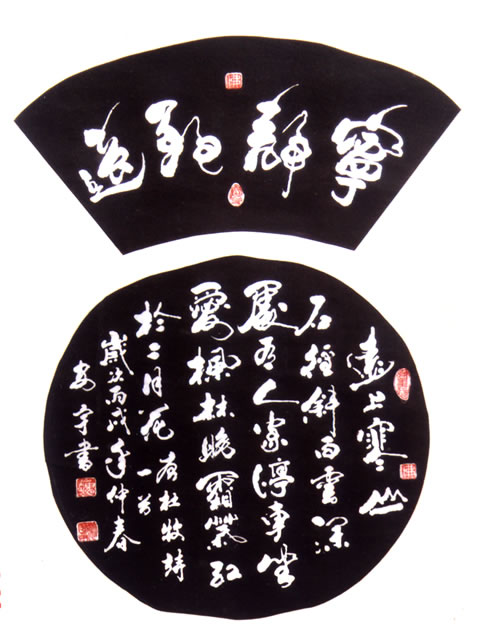 寧靜致遠
遠上寒山
石徑斜白雲深
處有人家停車坐
愛楓林晚霜葉紅
於二月花
唐杜牧詩
一首
歲次丙戌年仲春
安宇書